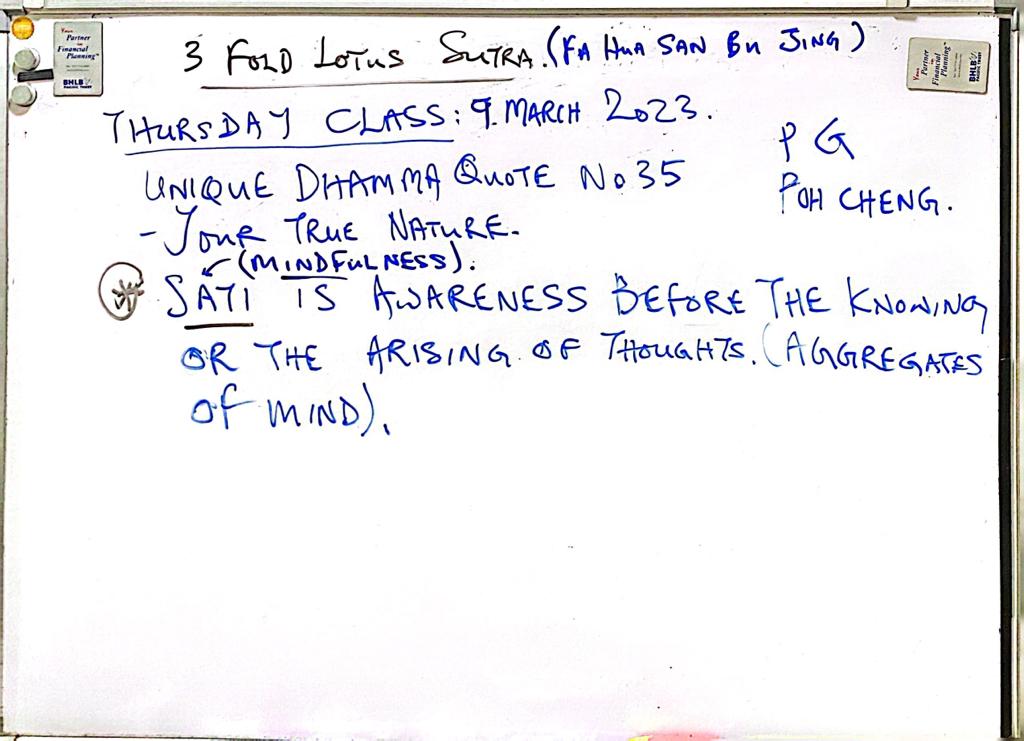 3 FOLD LOTUS SUTRA. (FA HUA SAN BU JING)
THURSDAY CLASS: 9. MARCH 2023.
PG
UNIQUE DHAMMA QUOTE No 35
POH CHENG.
- YOUR TRUE NATURE.
(MINDFULNESS).
SATI IS AWARENESS BEFORE THE KNOWING
OR THE ARISING OF THOUGHTS. (AGGREGATES
OF MIND).
Your
Partner
in
Financial
Planning
BHLB
PACIFIC TRUST
Your
Partner
in
Financial
Planning
BHLB
PACIFIC TRUST